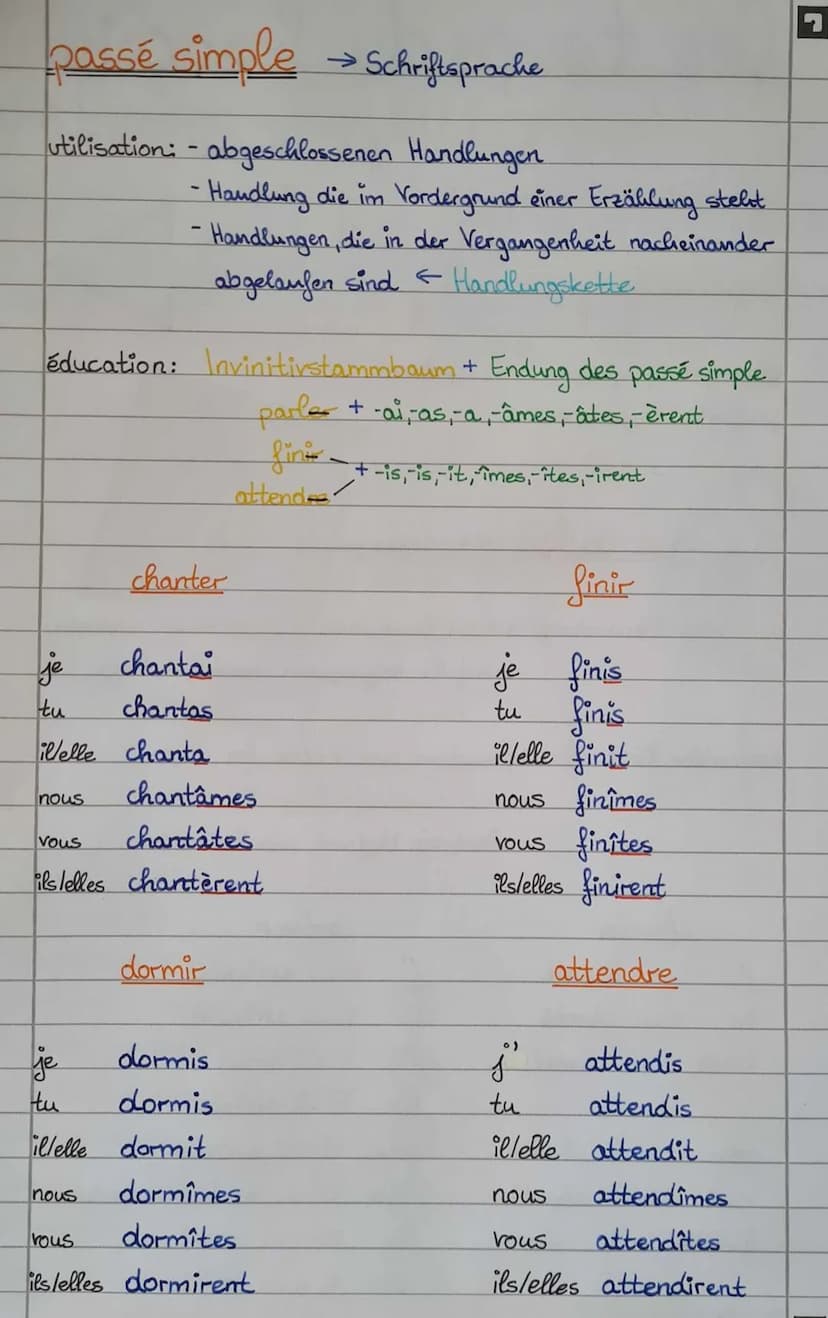 passé simple → Schriftsprache
utilisation: - abgeschlossenen Handlungen
- Handlung die im Vordergrund einer Erzählung steht
- Handlungen, die in der Vergangenheit nacheinander
abgelaufen sind ← Handlungskette
éducation: Invinitivstammbaum + Endung des passé simple
parler + -ai,-as,-a,-âmes,-âtes,-èrent
finir
+ -is,-is,-it,-îmes,-îtes,-irent
attendre
chanter finir
je chantai je finis
tu chantas tu finis
il/elle chanta il/elle finit
nous chantâmes nous finîmes
vous chantâtes vous finîtes
ils/elles chantèrent ils/elles finirent
dormir attendre
je dormis j' attendis
tu dormis tu attendis
il/elle dormit il/elle attendit
nous dormîmes nous attendîmes
vous dormîtes vous attendîtes
ils/elles dormirent ils/elles attendirent